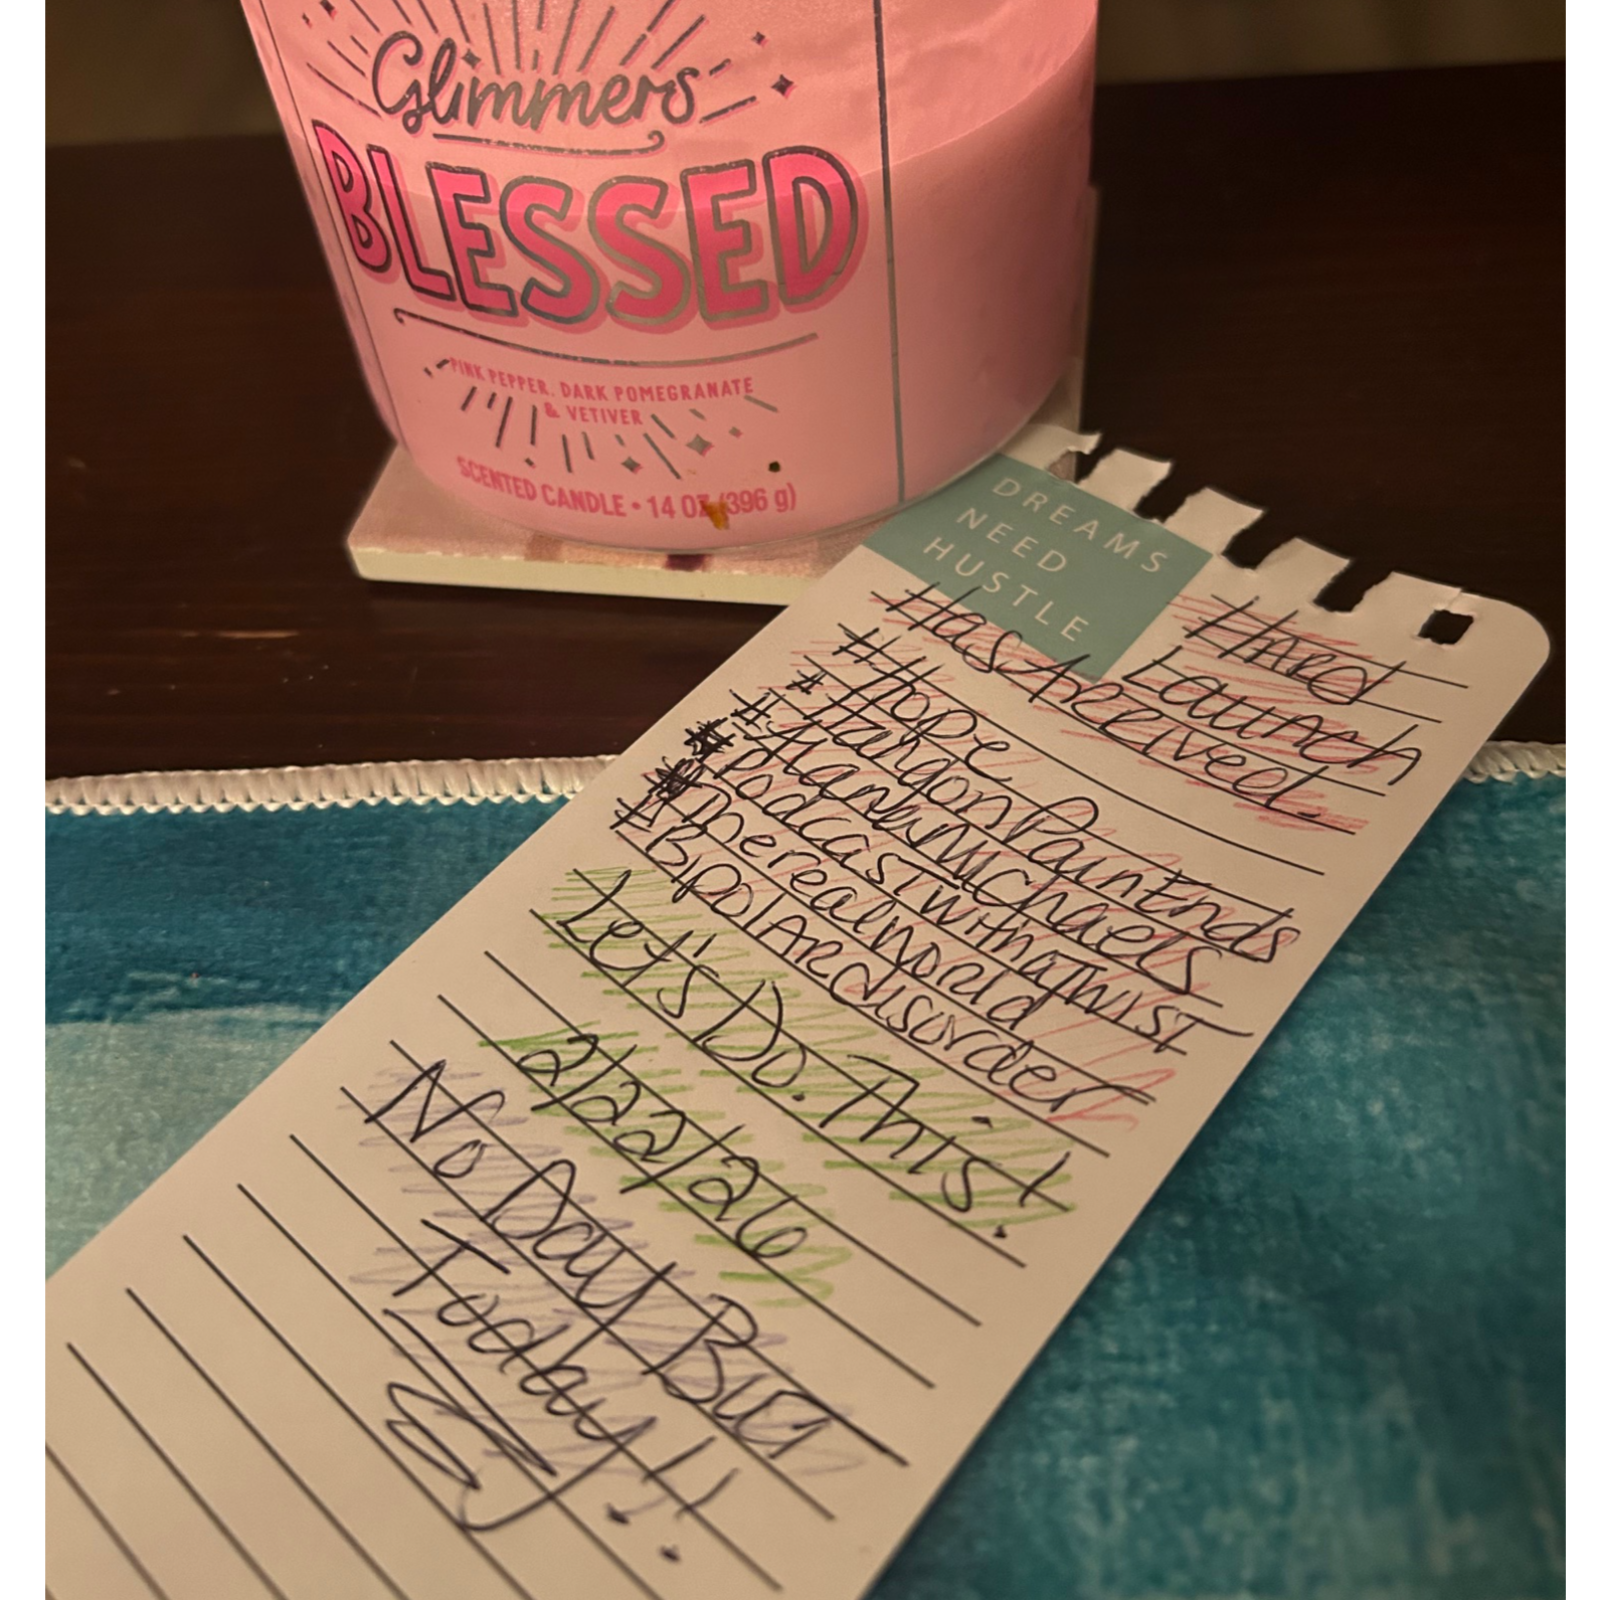 Glimmers
BLESSED
PINK PEPPER, DARK POMEGRANATE
& VETIVER
SCENTED CANDLE • 14 OZ (396 g)
DREAMS
NEED
HUSTLE
Hard
Launch
Has Arrived.
#Hope
#HangonPainEnds
#PodcastwithaTwist
#Therealworld
#BipolARdisorder
Let's Do. This!
2/22/26
No Day But
Today!!